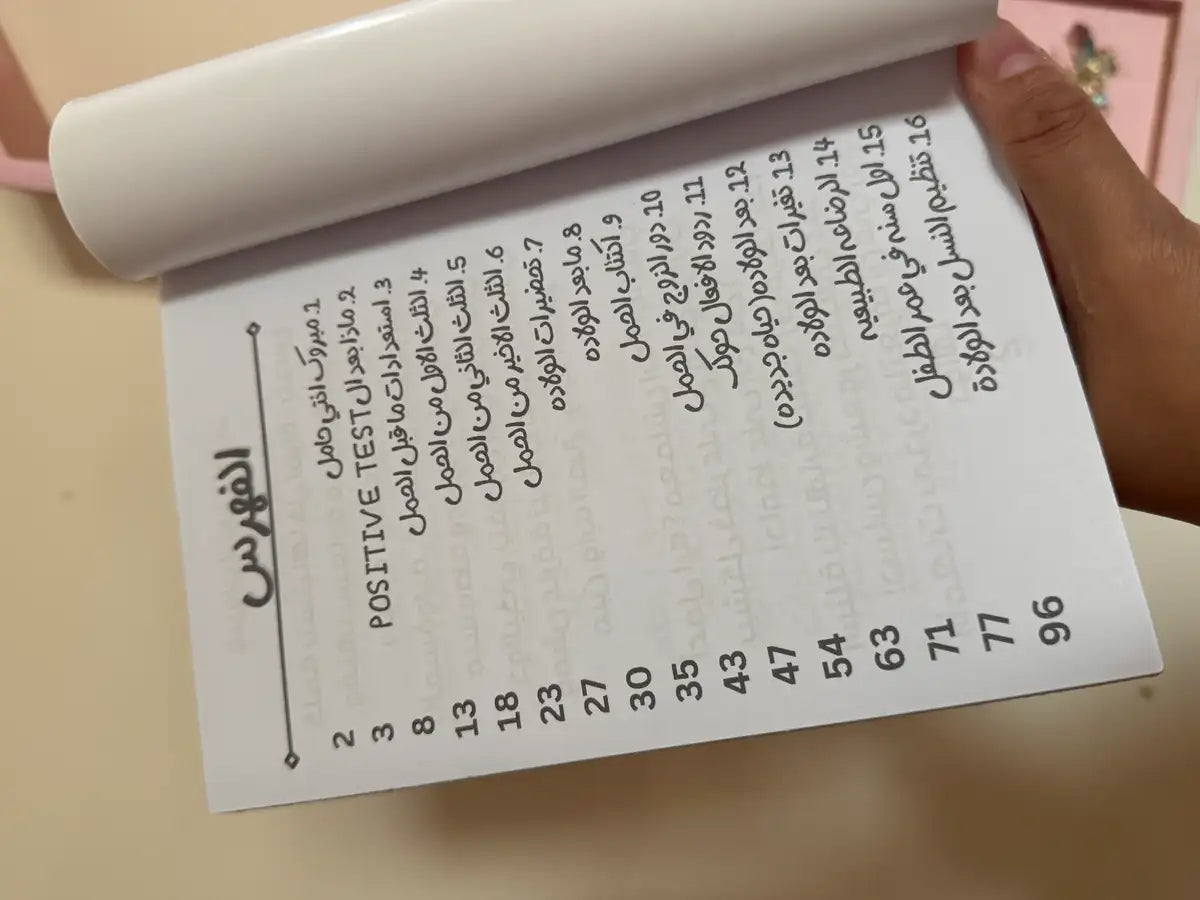 الفهرس
1. مبروك انتي حامل 2
2. ماذا بعد ال POSITIVE TEST 3
3. استعدادات ما قبل الحمل 8
4. الثلث الاول من الحمل 13
5. الثلث الثاني من الحمل 18
6. الثلث الاخير من الحمل 23
7. تحضيرات الولاده 27
8. ما بعد الولاده 30
9. أكتئاب الحمل 35
10. دور الزوج في الحمل 43
11. ردود الافعال حولك 47
12. بعد الولاده (حياه جديده) 54
13. تغيرات بعد الولاده 63
14. الرضاعه الطبيعيه 71
15. اول سنه في عمر الطفل 77
16. تنظيم النسل بعد الولادة 96